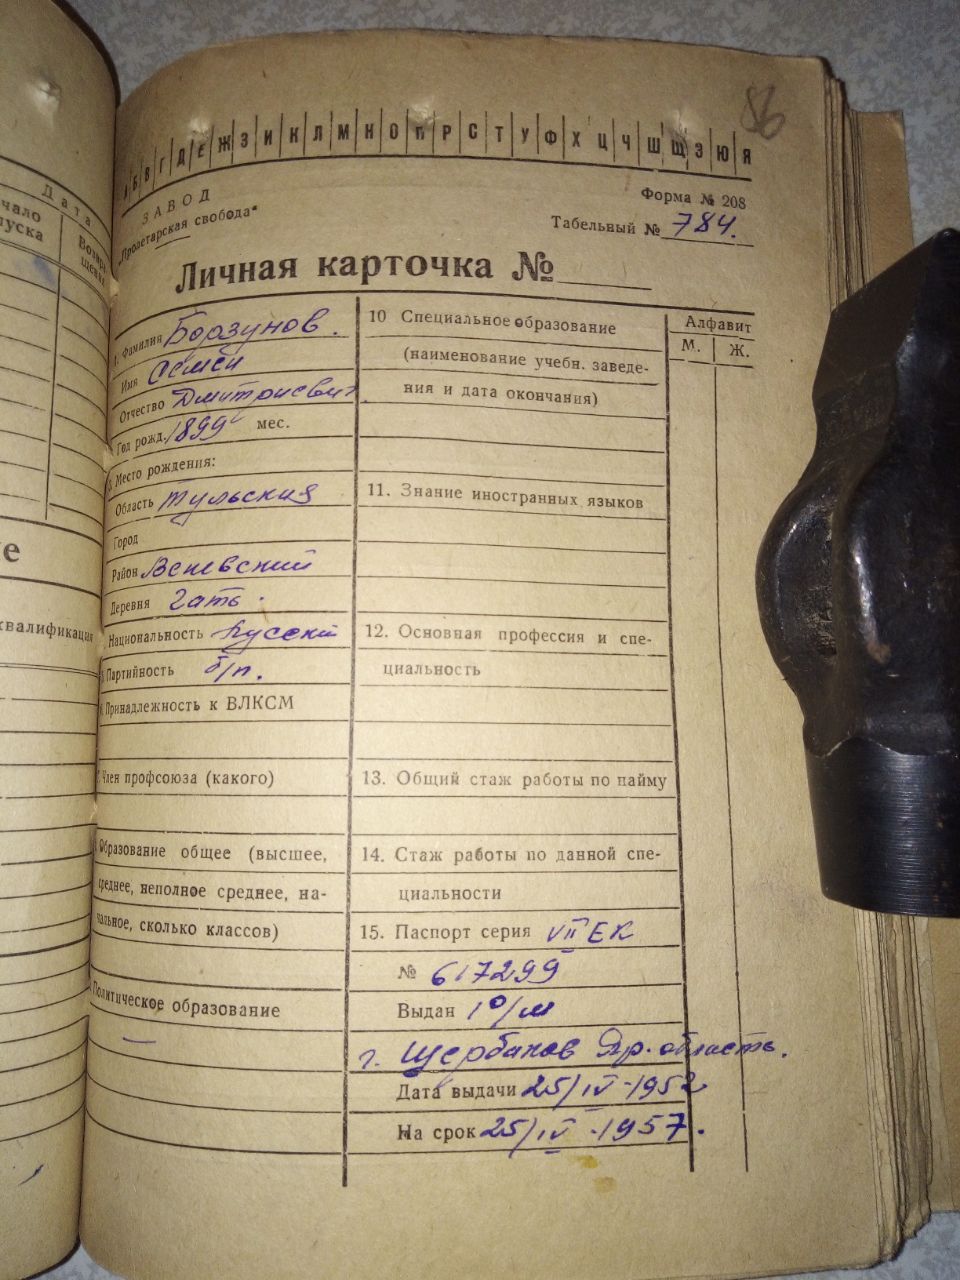 Дата
чало
пуска
Возвра-
щения
е
квалификация
86
А Б В Г Д Е Ж З И К Л М Н О П Р С Т У Ф Х Ц Ч Ш Щ Э Ю Я
ЗАВОД
„Пролетарская свобода“
Форма № 208
Табельный № 784.
Личная карточка №
1. Фамилия Борзунов.
Имя Семен
Отчество Дмитриевич
Год рожд. 1899 мес.
3. Место рождения:
Область Тульская
Город
Район Веневский
Деревня Гать.
Национальность Русский
5. Партийность б/п.
Принадлежность к ВЛКСМ
Член профсоюза (какого)
Образование общее (высшее,
среднее, неполное среднее, на-
чальное, сколько классов)
Политическое образование
—
10 Специальное образование
(наименование учебн. заведе-
ния и дата окончания)
11. Знание иностранных языков
12. Основная профессия и спе-
циальность
13. Общий стаж работы по найму
14. Стаж работы по данной спе-
циальности
15. Паспорт серия VII ЕК
№ 617299
Выдан 1 о/м
г. Щербаков Яр. область.
Дата выдачи 25/IV-1952
На срок 25/IV-1957.
Алфавит
М. Ж.